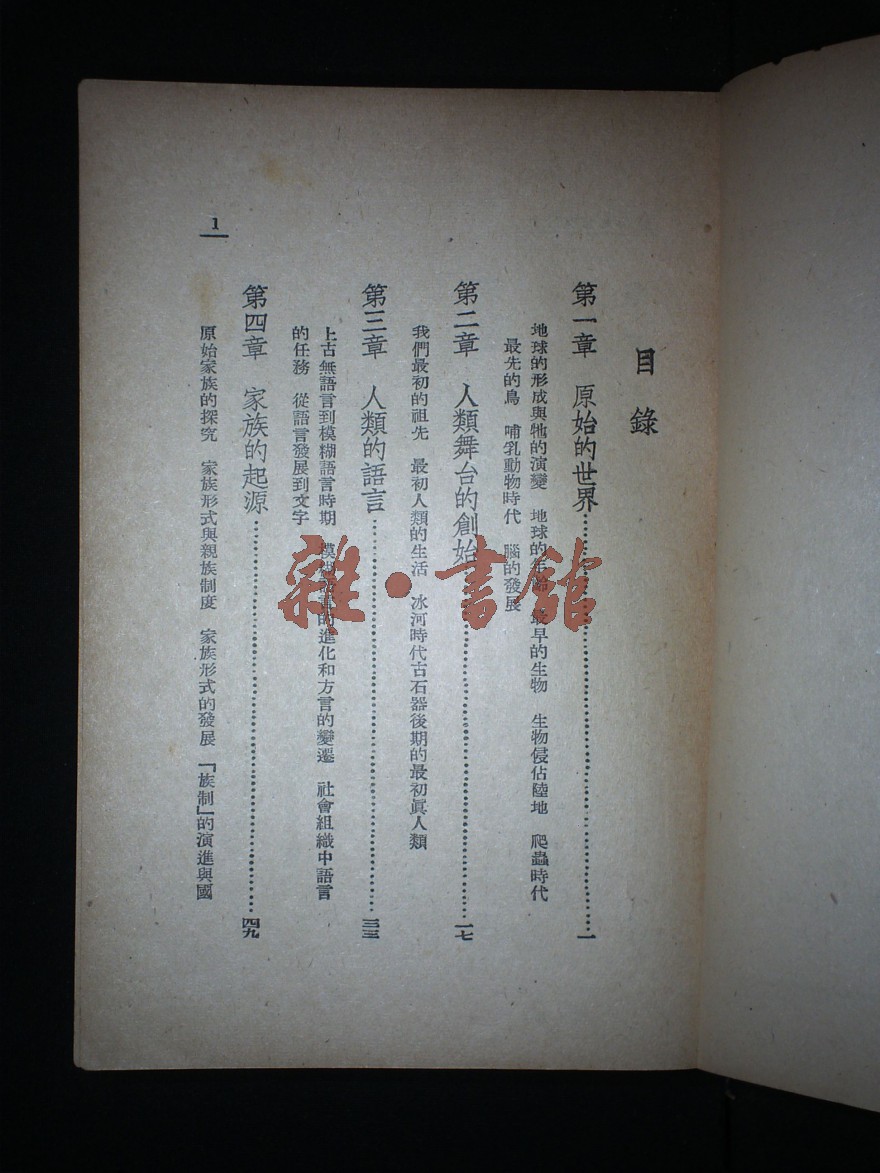 目錄
第一章　原始的世界……一
地球的形成與牠的演變　地球的年齡　最早的生物　生物侵佔陸地　爬蟲時代
最先的鳥　哺乳動物時代　腦的發展
第二章　人類舞台的創始……一七
我們最初的祖先　最初人類的生活　冰河時代古石器後期的最初眞人類
第三章　人類的語言……三三
上古無語言到模糊語言時期　模糊語言的進化和方言的變遷　社會組織中語言
的任務　從語言發展到文字
第四章　家族的起源……四九
原始家族的探究　家族形式與親族制度　家族形式的發展　「族制」的演進與國
1
雜·書館